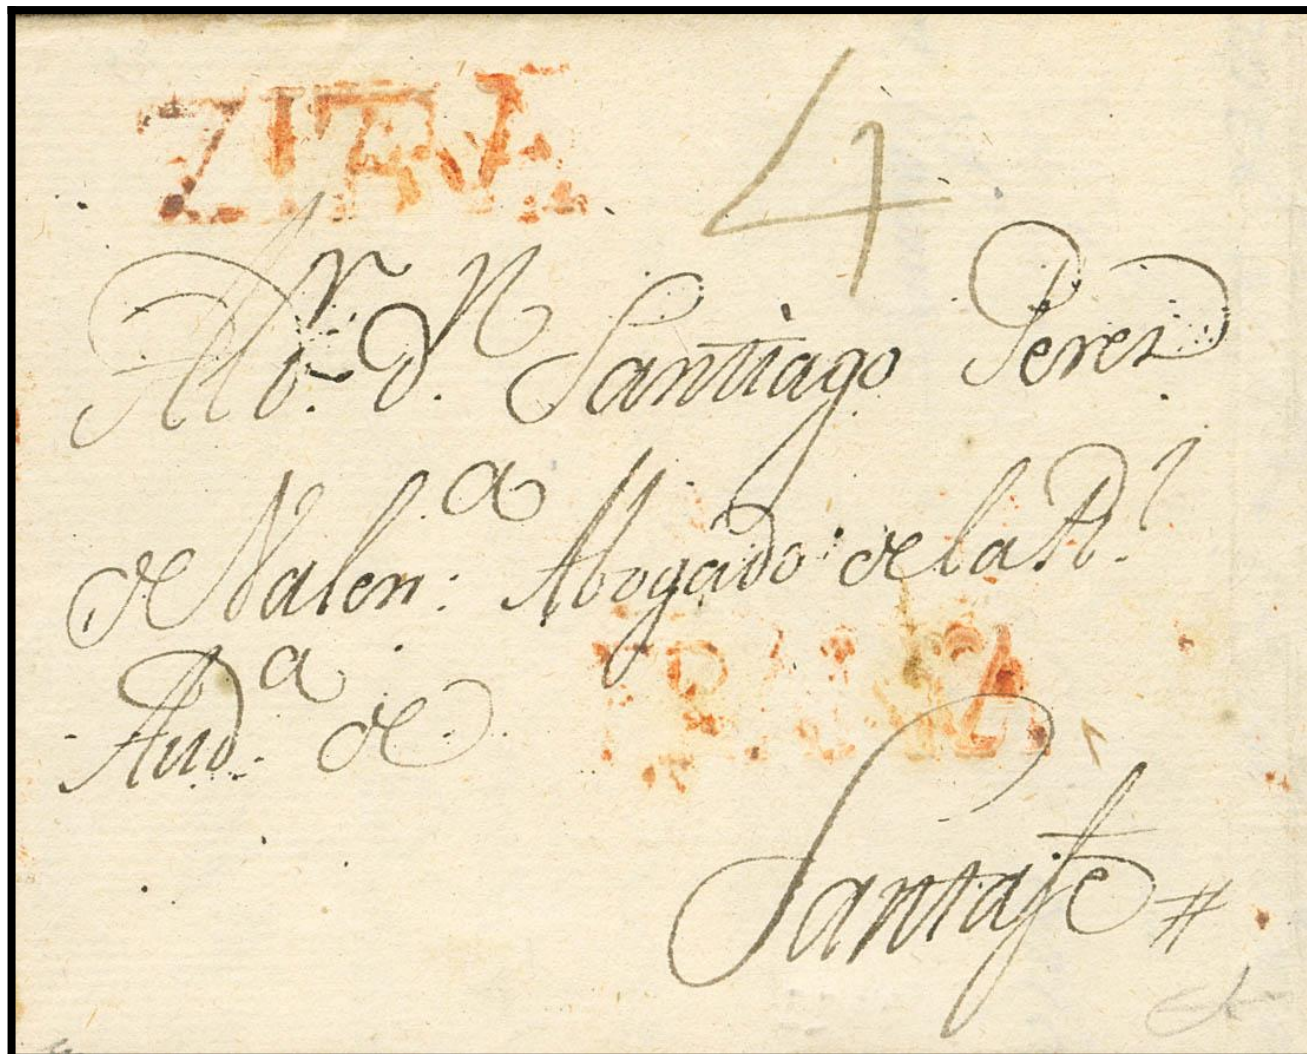 4
Al S.r D.n Santiago Perez
de Valen:a Abogado de la R.l
Aud.a de
FRANCA
Santafe #